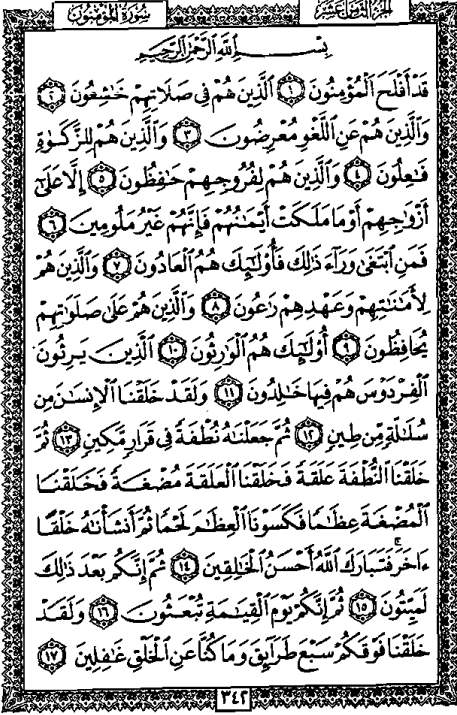 الجزء الثامن عشر سورة المؤمنون
بِسْمِ اللَّهِ الرَّحْمَٰنِ الرَّحِيمِ
قَدْ أَفْلَحَ الْمُؤْمِنُونَ ١ الَّذِينَ هُمْ فِي صَلَاتِهِمْ خَاشِعُونَ ٢
وَالَّذِينَ هُمْ عَنِ اللَّغْوِ مُعْرِضُونَ ٣ وَالَّذِينَ هُمْ لِلزَّكَوٰةِ
فَاعِلُونَ ٤ وَالَّذِينَ هُمْ لِفُرُوجِهِمْ حَافِظُونَ ٥ إِلَّا عَلَىٰ
أَزْوَاجِهِمْ أَوْ مَا مَلَكَتْ أَيْمَانُهُمْ فَإِنَّهُمْ غَيْرُ مَلُومِينَ ٦
فَمَنِ ابْتَغَىٰ وَرَاءَ ذَٰلِكَ فَأُولَٰئِكَ هُمُ الْعَادُونَ ٧ وَالَّذِينَ هُمْ
لِأَمَانَاتِهِمْ وَعَهْدِهِمْ رَاعُونَ ٨ وَالَّذِينَ هُمْ عَلَىٰ صَلَوَاتِهِمْ
يُحَافِظُونَ ٩ أُولَٰئِكَ هُمُ الْوَارِثُونَ ١٠ الَّذِينَ يَرِثُونَ
الْفِرْدَوْسَ هُمْ فِيهَا خَالِدُونَ ١١ وَلَقَدْ خَلَقْنَا الْإِنسَانَ مِن
سُلَالَةٍ مِّن طِينٍ ١٢ ثُمَّ جَعَلْنَاهُ نُطْفَةً فِي قَرَارٍ مَّكِينٍ ١٣ ثُمَّ
خَلَقْنَا النُّطْفَةَ عَلَقَةً فَخَلَقْنَا الْعَلَقَةَ مُضْغَةً فَخَلَقْنَا
الْمُضْغَةَ عِظَامًا فَكَسَوْنَا الْعِظَامَ لَحْمًا ثُمَّ أَنشَأْنَاهُ خَلْقًا
ءَاخَرَ فَتَبَارَكَ اللَّهُ أَحْسَنُ الْخَالِقِينَ ١٤ ثُمَّ إِنَّكُم بَعْدَ ذَٰلِكَ
لَمَيِّتُونَ ١٥ ثُمَّ إِنَّكُمْ يَوْمَ الْقِيَامَةِ تُبْعَثُونَ ١٦ وَلَقَدْ
خَلَقْنَا فَوْقَكُمْ سَبْعَ طَرَائِقَ وَمَا كُنَّا عَنِ الْخَلْقِ غَافِلِينَ ١٧
٣٤٢